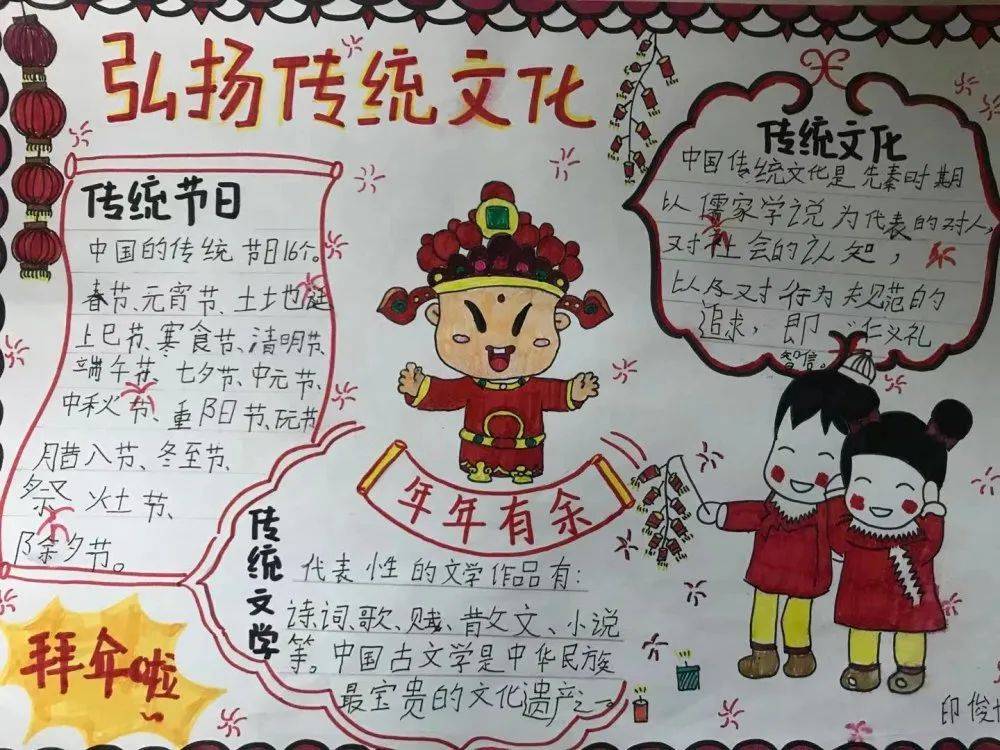 弘扬传统文化
传统节日
中国的传统节日16个。
春节、元宵节、土地诞
上巳节、寒食节、清明节、
端午节、七夕节、中元节、
中秋节、重阳日节、玩节
腊八节、冬至节、
祭灶节、
除夕节。
传统文化
中国传统文化是先秦时期
以儒家学说为代表的对人,
对社会的认知,
以及对行为规范的
追求,即仁义礼
智信。
年年有余
传统文学
代表性的文学作品有:
诗、词、歌、赋、散文、小说
等。中国古文学是中华民族
最宝贵的文化遗产之一。
拜年啦
印俊